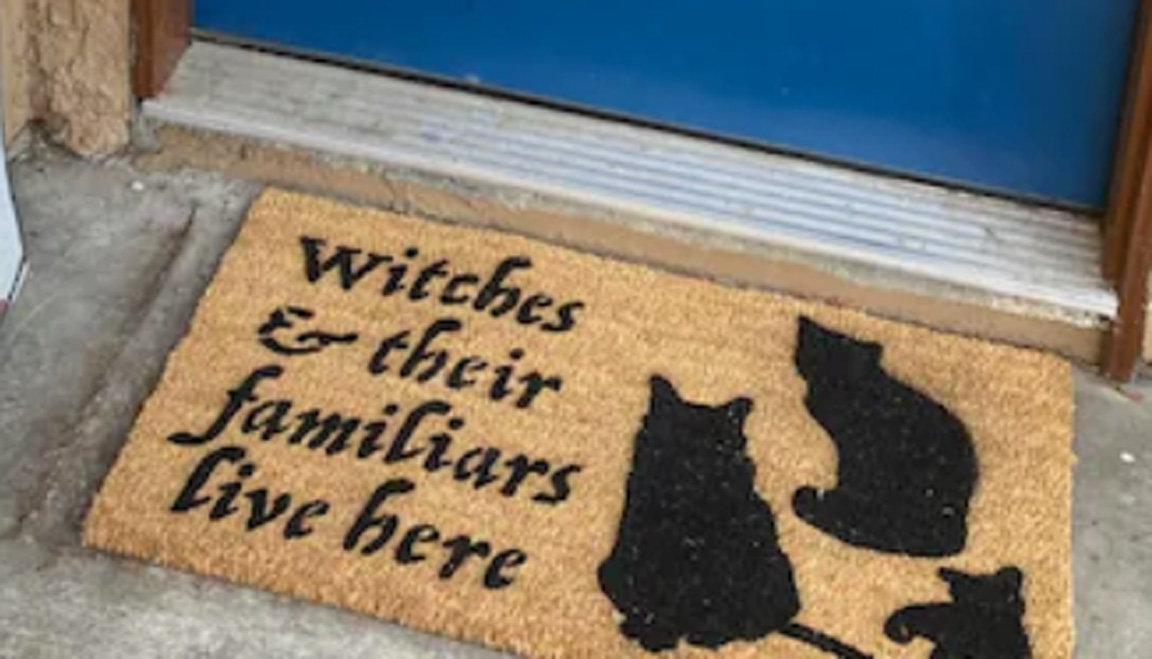 Witches
& their
familiars
live here